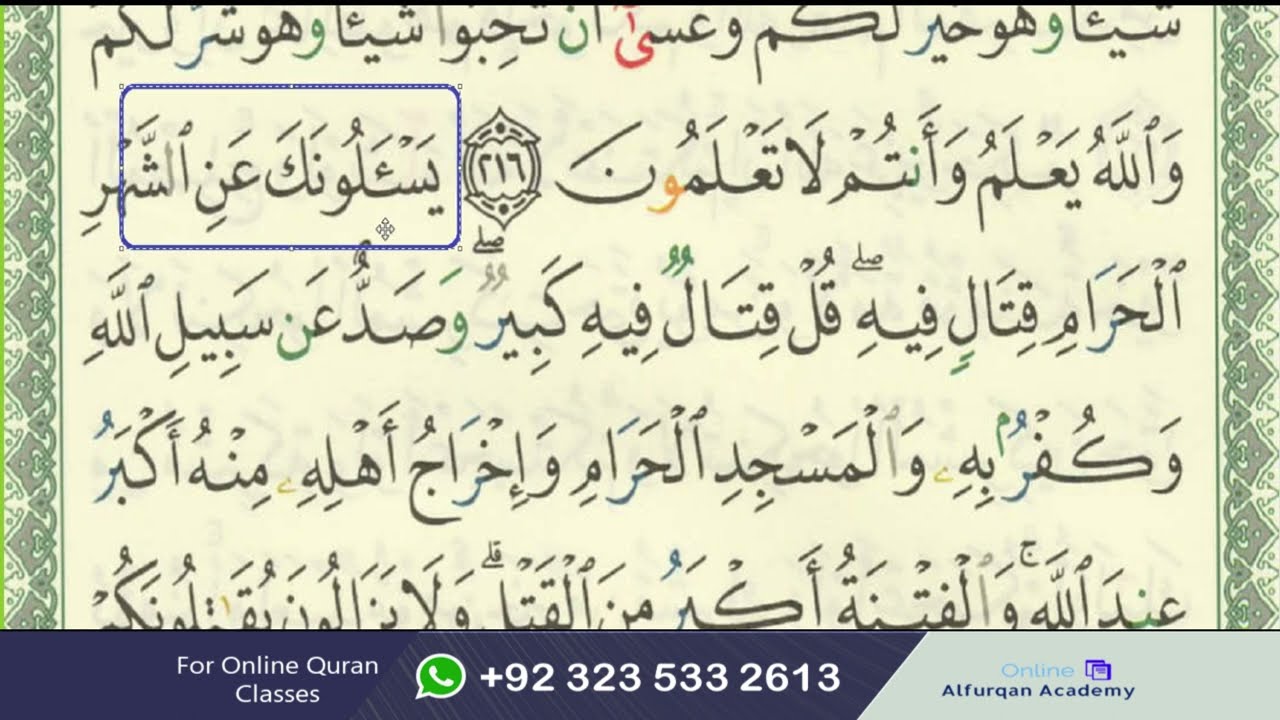 شَيْـًٔا وَهُوَ خَيْرٌ لَّكُمْ وَعَسَىٰٓ أَن تُحِبُّوا۟ شَيْـًٔا وَهُوَ شَرٌّ لَّكُمْ
وَٱللَّهُ يَعْلَمُ وَأَنتُمْ لَا تَعْلَمُونَ ٢١٦ يَسْـَٔلُونَكَ عَنِ ٱلشَّهْرِ
ٱلْحَرَامِ قِتَالٍ فِيهِ ۖ قُلْ قِتَالٌ فِيهِ كَبِيرٌ ۖ وَصَدٌّ عَن سَبِيلِ ٱللَّهِ
وَكُفْرٌۢ بِهِۦ وَٱلْمَسْجِدِ ٱلْحَرَامِ وَإِخْرَاجُ أَهْلِهِۦ مِنْهُ أَكْبَرُ
عِندَ ٱللَّهِ ۚ وَٱلْفِتْنَةُ أَكْبَرُ مِنَ ٱلْقَتْلِ ۗ وَلَا يَزَالُونَ يُقَـٰتِلُونَكُمْ
For Online Quran
Classes
+92 323 533 2613
Online
Alfurqan Academy